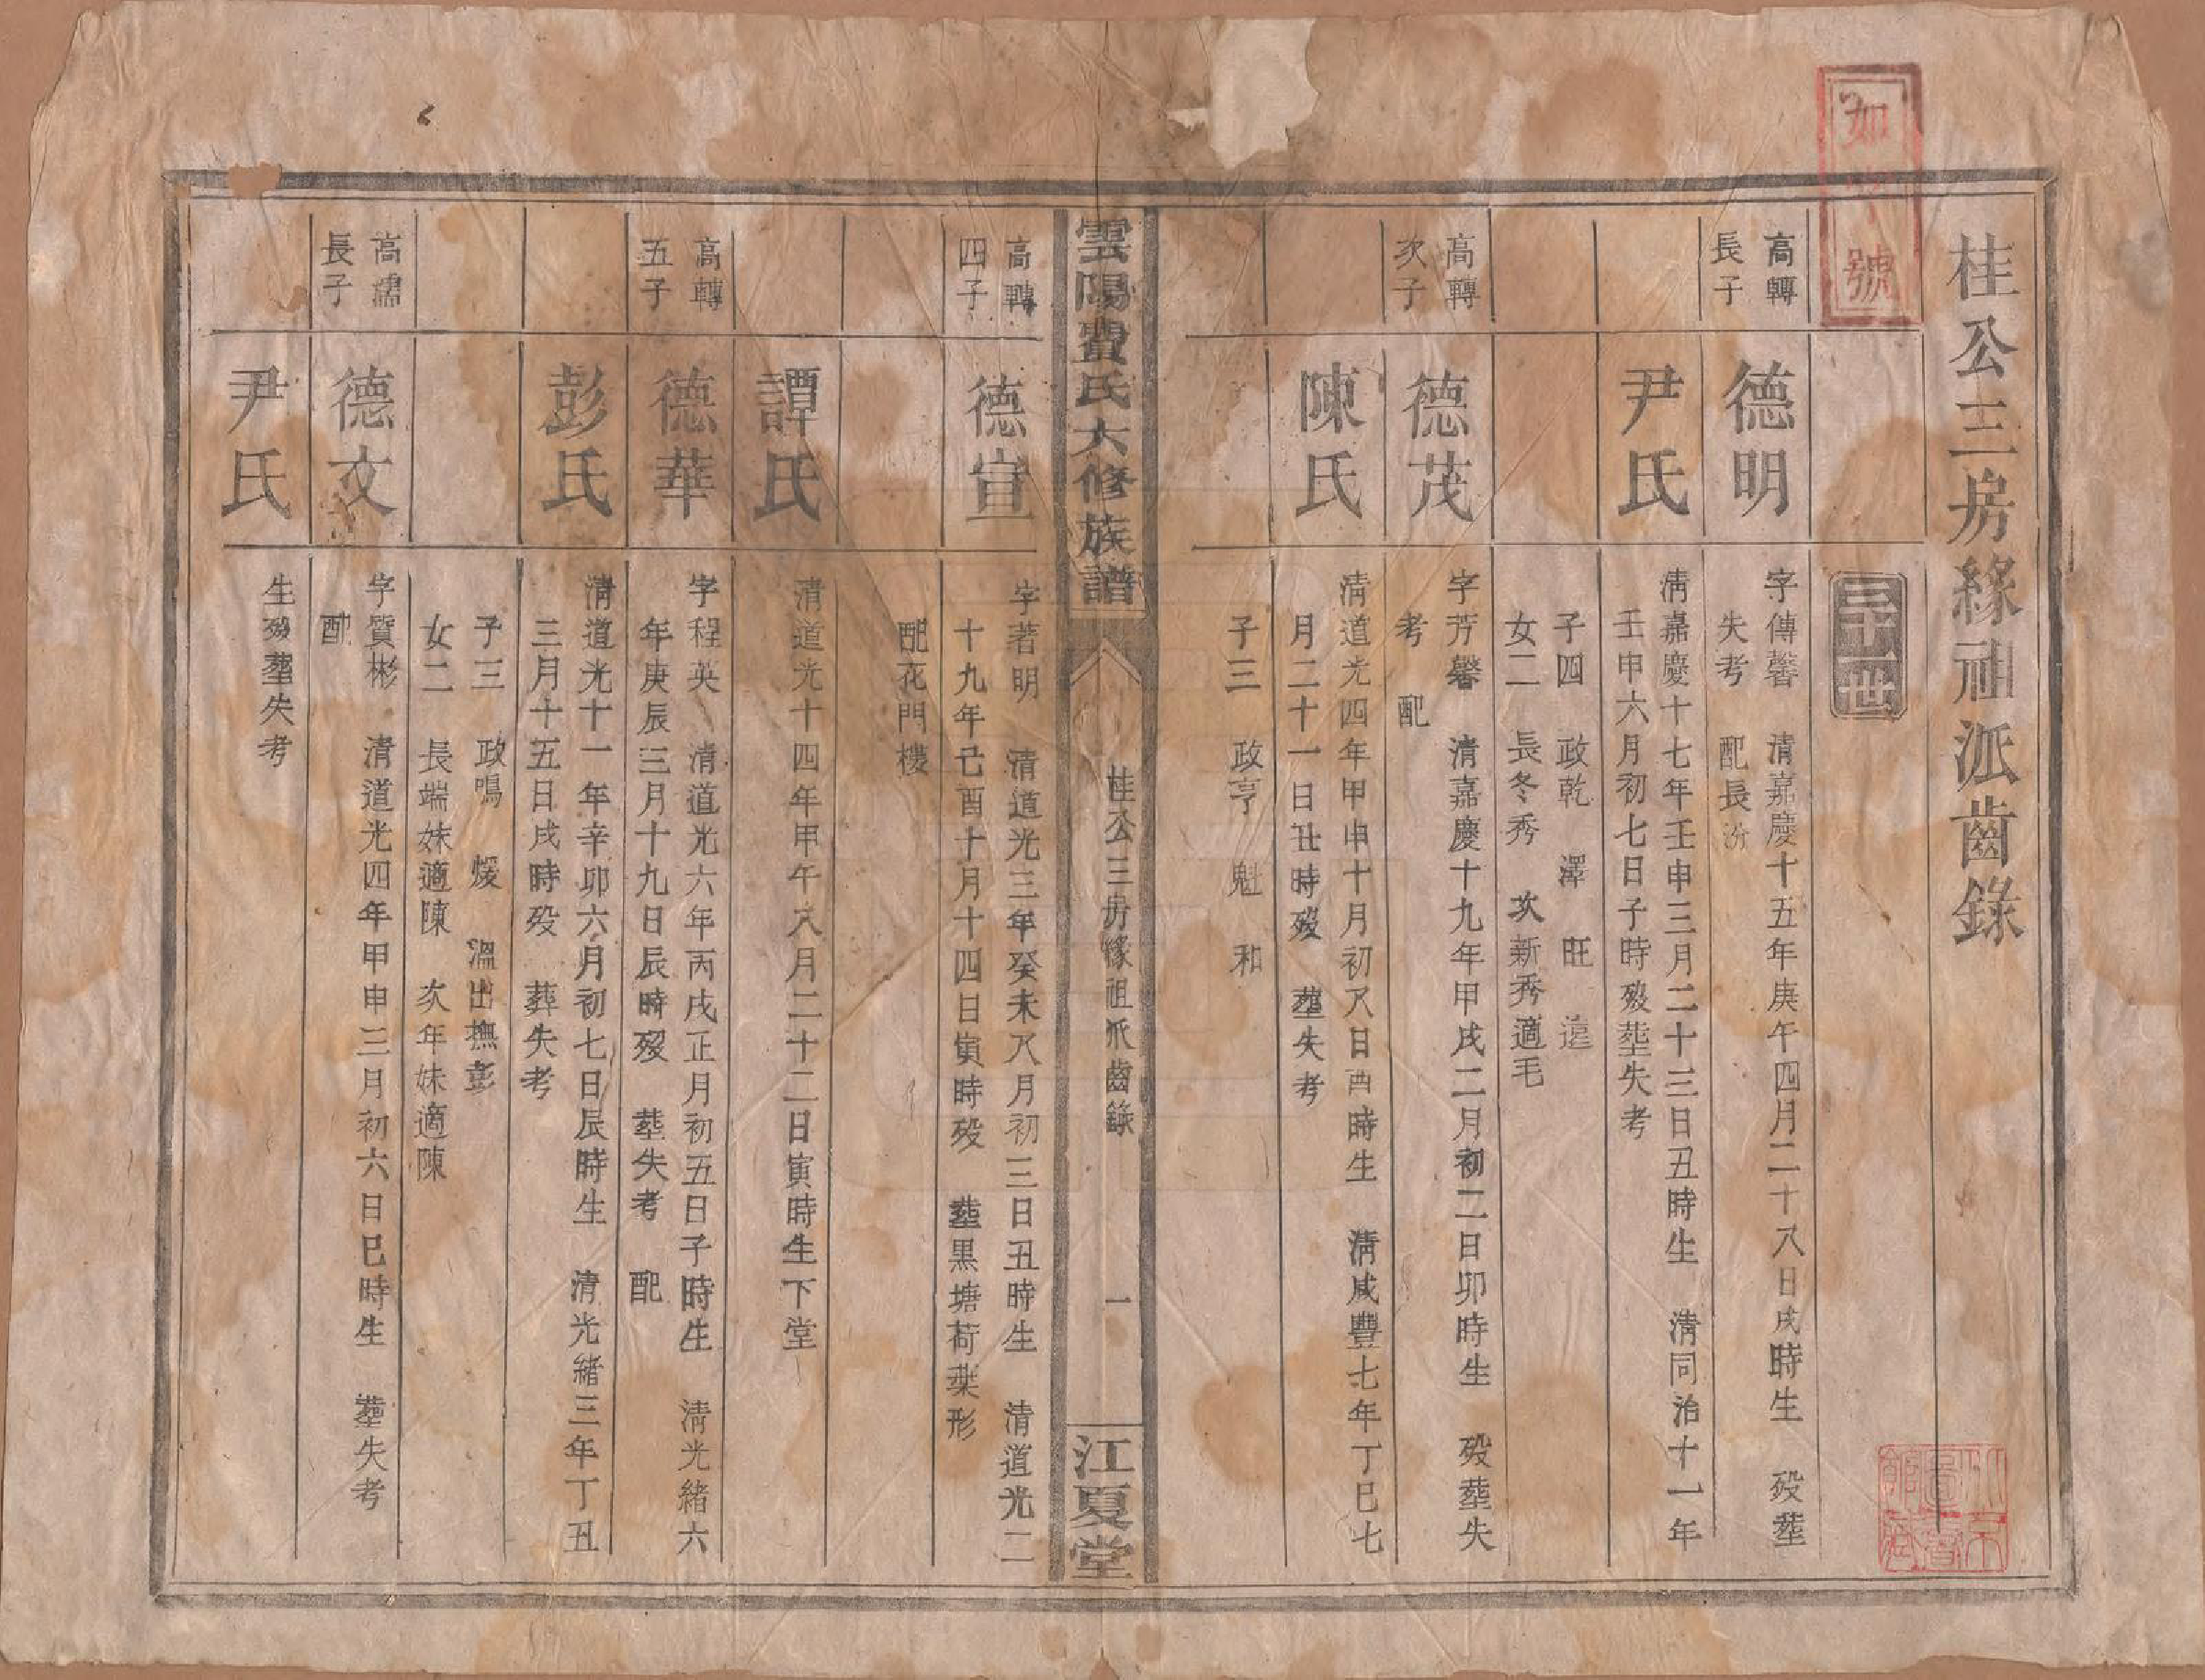 桂公三房緣祖派齒錄
三十一世
高轉
長子
德明
字傳馨　清嘉慶十五年庚午四月二十八日戌時生　殁塟
失考　配長汾
尹氏
淸嘉慶十七年壬申三月二十三日丑時生　淸同治十一年
壬申六月初七日子時殁塟失考
子四　政乾　澤　旺　遠
女二　長冬秀　次新秀適毛
高轉
次子
德茂
字芳馨　淸嘉慶十九年甲戌二月初二日卯時生　殁塟失
考　配
陳氏
清道光四年甲申十月初八日酉時生　淸咸豐七年丁巳七
月二十一日丑時殁　塟失考
子三　政亨　魁　和
雲陽費氏六修族譜
桂公三房緣祖派齒錄
一
江夏堂
高轉
四子
德宣
字著明　清道光三年癸未八月初三日丑時生　清道光二
十九年己酉十月十四日寅時殁　塟黑塘荷葉形
配花門樓
譚氏
清道光十四年甲午八月二十二日寅時生下堂
高轉
五子
德華
字程英　清道光六年丙戌正月初五日子時生　淸光緒六
年庚辰三月十九日辰時殁　塟失考　配
彭氏
清道光十一年辛卯六月初七日辰時生　清光緒三年丁丑
三月十五日戌時殁　葬失考
子三　政鳴　煖　溫出撫彭
女二　長端妹適陳　次年妹適陳
高
長子
德文
字質彬　清道光四年甲申三月初六日巳時生　塟失考
配
尹氏
生殁塟失考
如
號